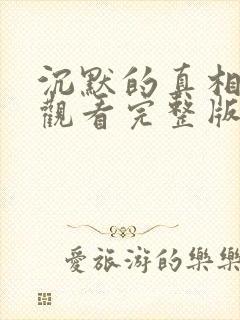 沉默的真相
觀看完整版
愛旅游的樂樂